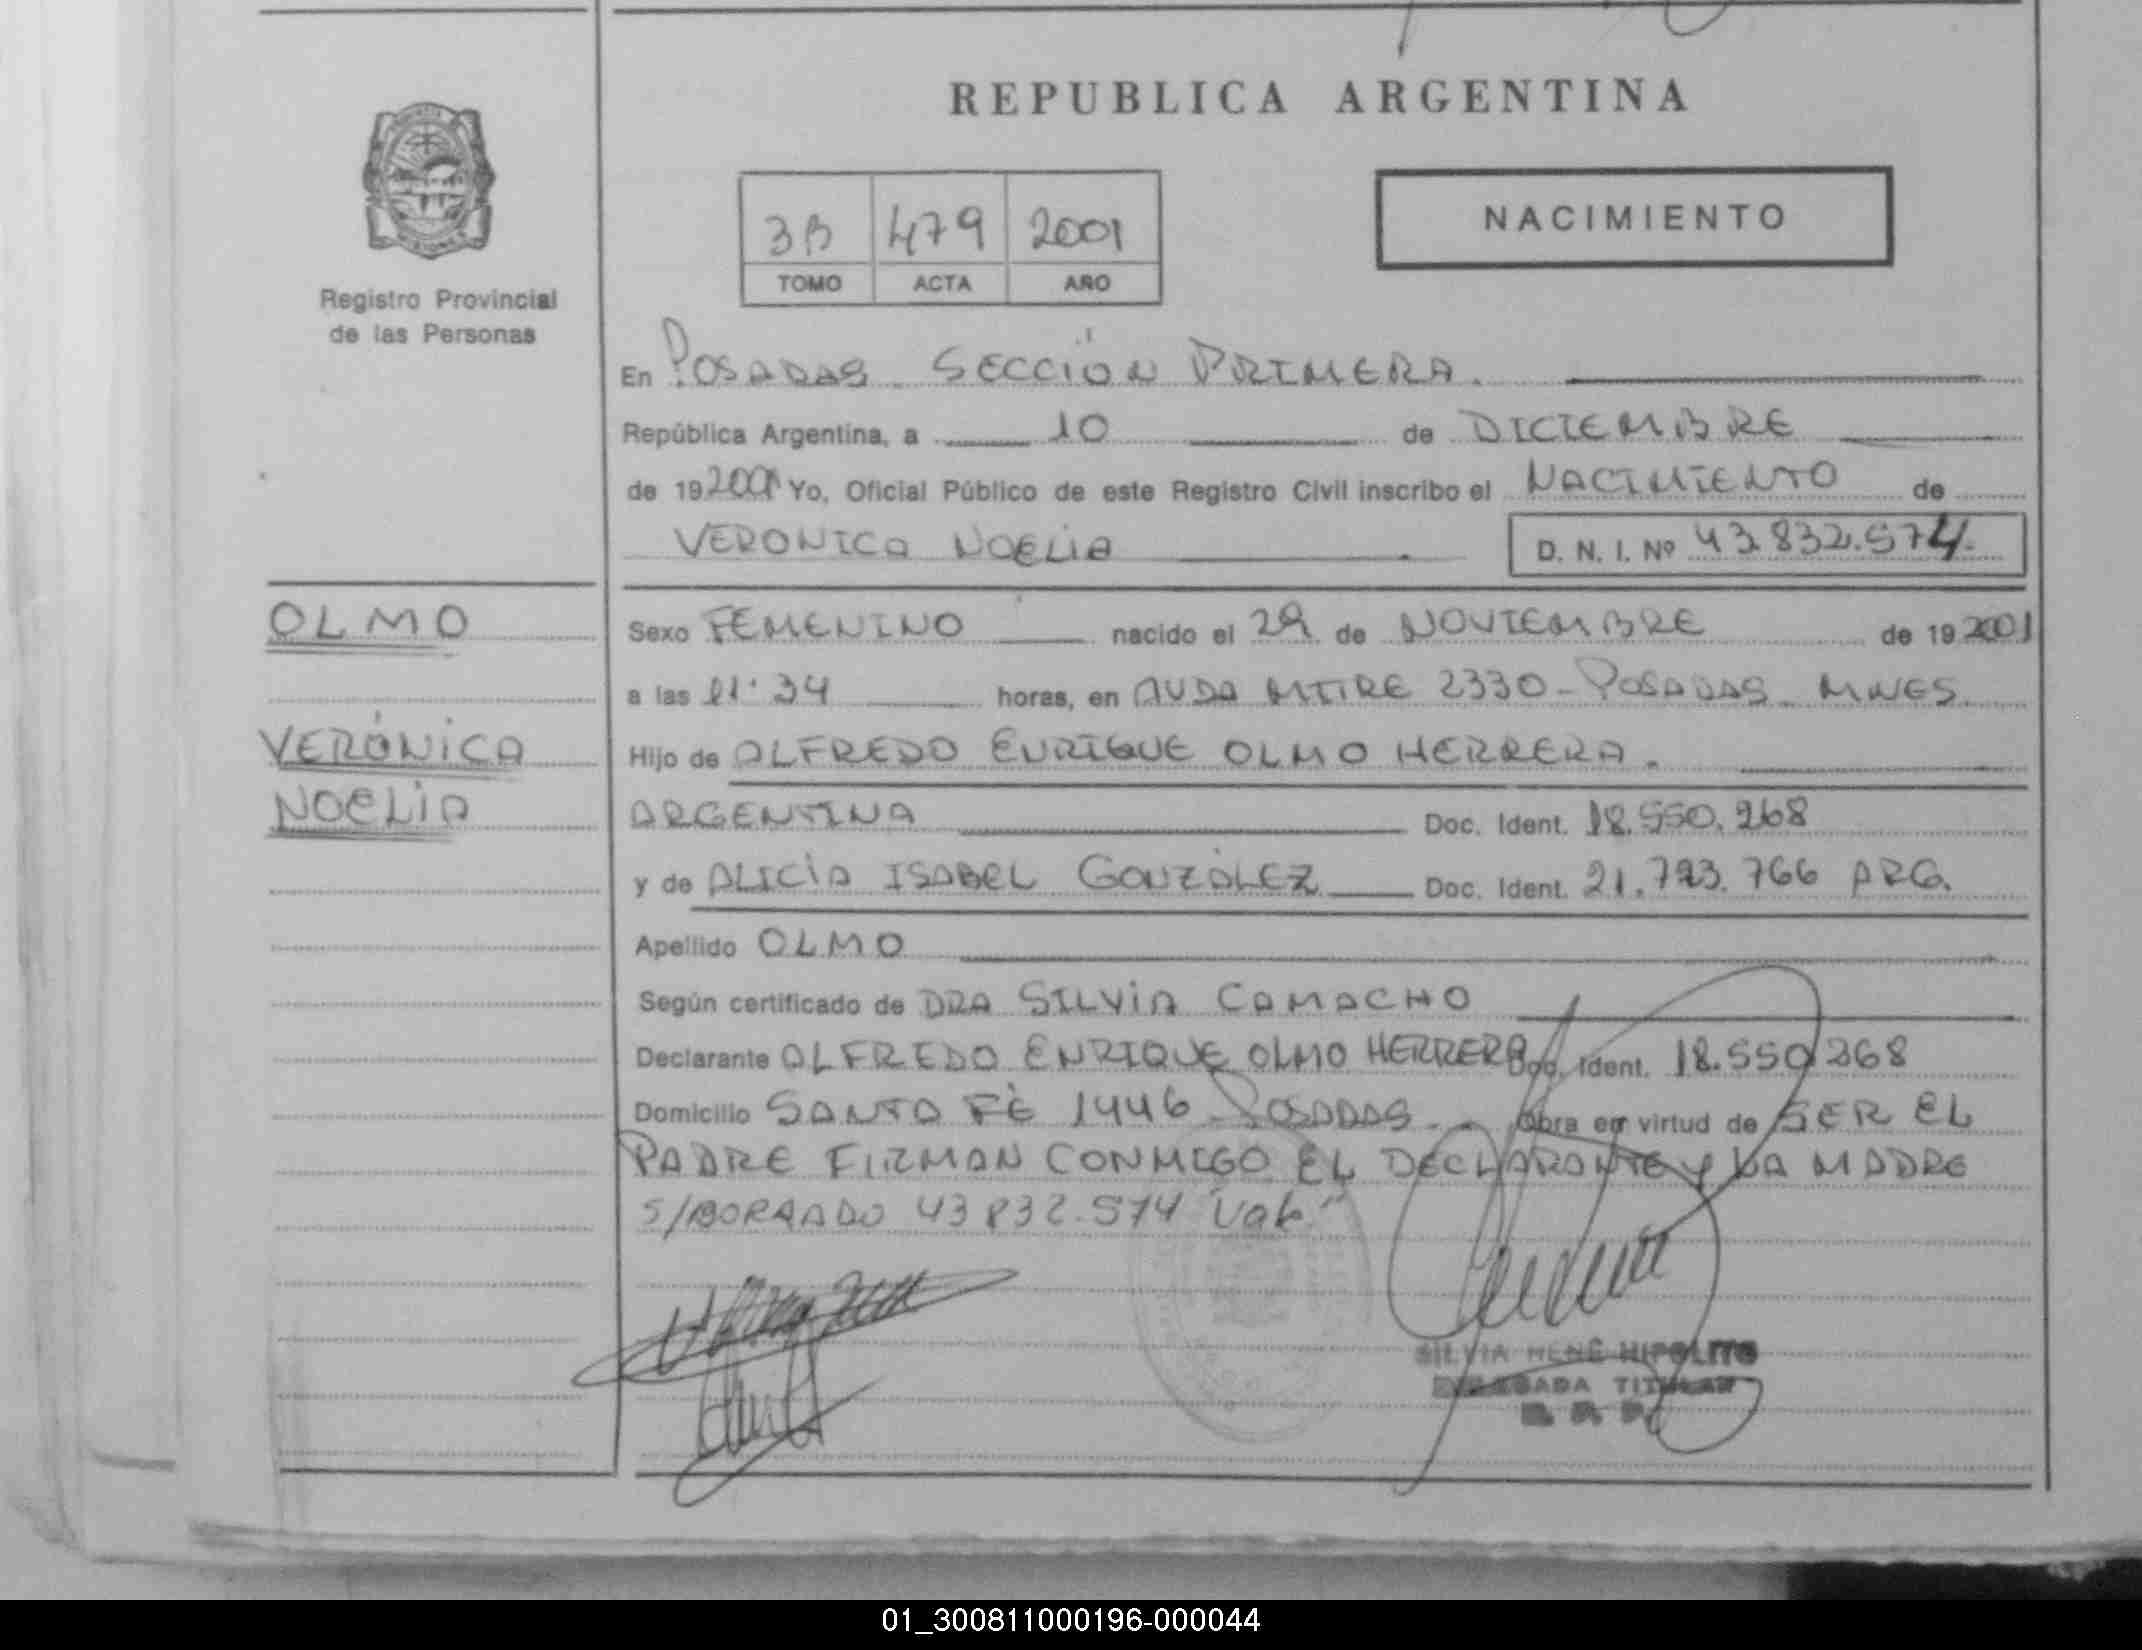 REPUBLICA ARGENTINA
3B 479 2001
TOMO ACTA AÑO
NACIMIENTO
Registro Provincial
de las Personas
En POSADAS. SECCIÓN PRIMERA.
República Argentina, a 10 de DICIEMBRE
de 19 2001 Yo, Oficial Público de este Registro Civil inscribo el NACIMIENTO de
VERONICA NOELIA D. N. I. Nº 43.832.574.
OLMO
VERÓNICA
NOELIA
Sexo FEMENINO nacido el 29 de NOVIEMBRE de 19 2001
a las 11:34 horas, en AVDA MITRE 2330 - POSADAS - MNES.
Hijo de ALFREDO ENRIQUE OLMO HERRERA.
ARGENTINA Doc. Ident. 18.550.268
y de ALICIA ISABEL GONZÁLEZ Doc. Ident. 21.723.766 ARG.
Apellido OLMO
Según certificado de DRA SILVIA CAMACHO
Declarante ALFREDO ENRIQUE OLMO HERRERA Doc. Ident. 18.550.268
Domicilio SANTA FÉ 1446 - POSADAS - Obra en virtud de SER EL
PADRE FIRMAN CONMIGO EL DECLARANTE y LA MADRE
S/BORRADO 43 832.574 "Vale"
SILVIA RENÉ HIPOLITO
DELEGADA TITULAR
01_300811000196-000044